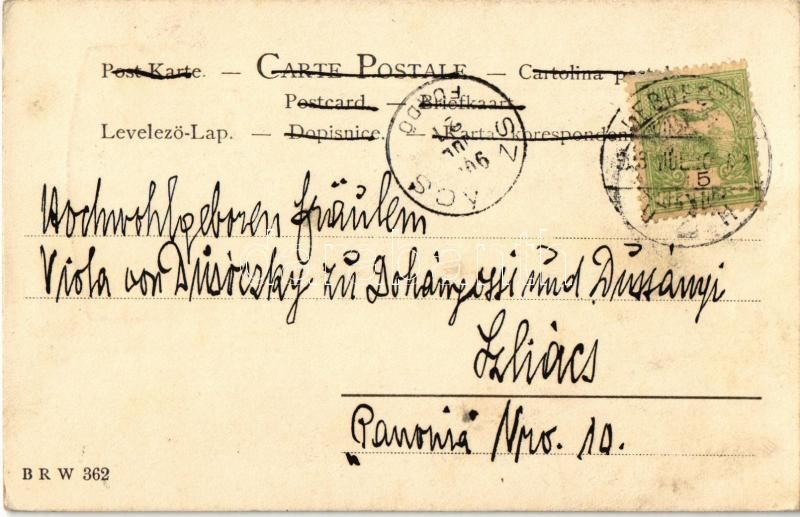 Post-Karte. — CARTE POSTALE — Cartolina postale
Postcard. — Briefkaart.
Levelező-Lap. — Dopisnice. — Karta korespondencyjna
SZLIÁCS FÜRDŐ
JUL
5
Hochwohlgeboren Fräulein
Viola von Dusóczky zu Dohángossi und Dussányi
Szliács
„Panonia Nro. 10.
B R W 362